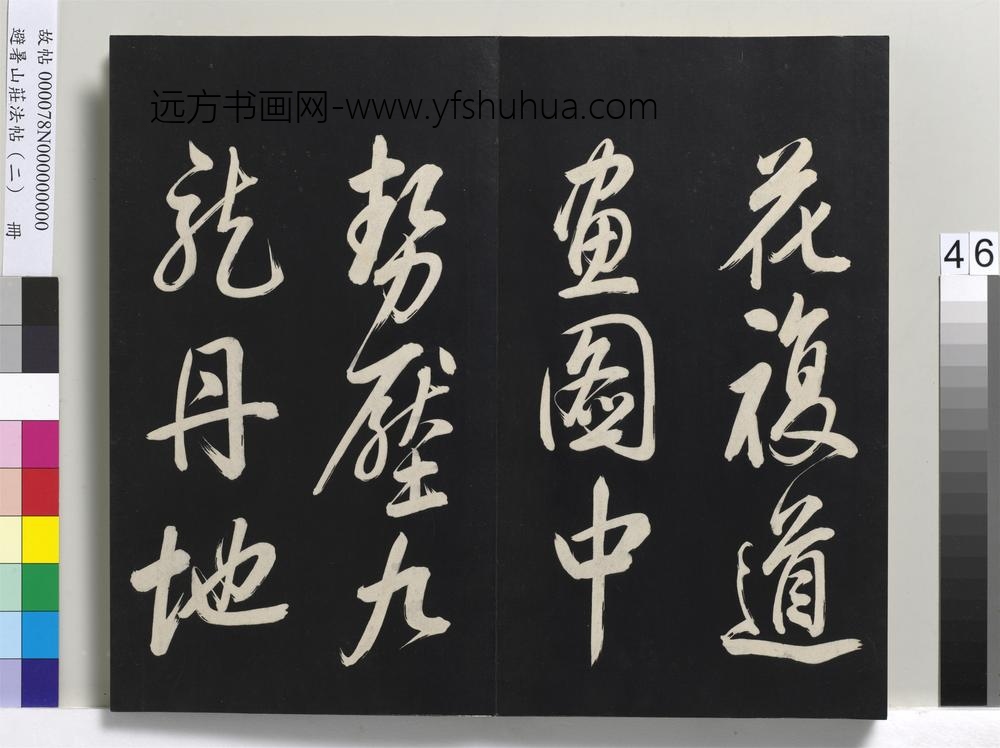 花複道
畫圖中
勢壓九
龍丹地
远方书画网-www.yfshuhua.com
故帖 000078N000000000
避暑山莊法帖（二） 冊
46